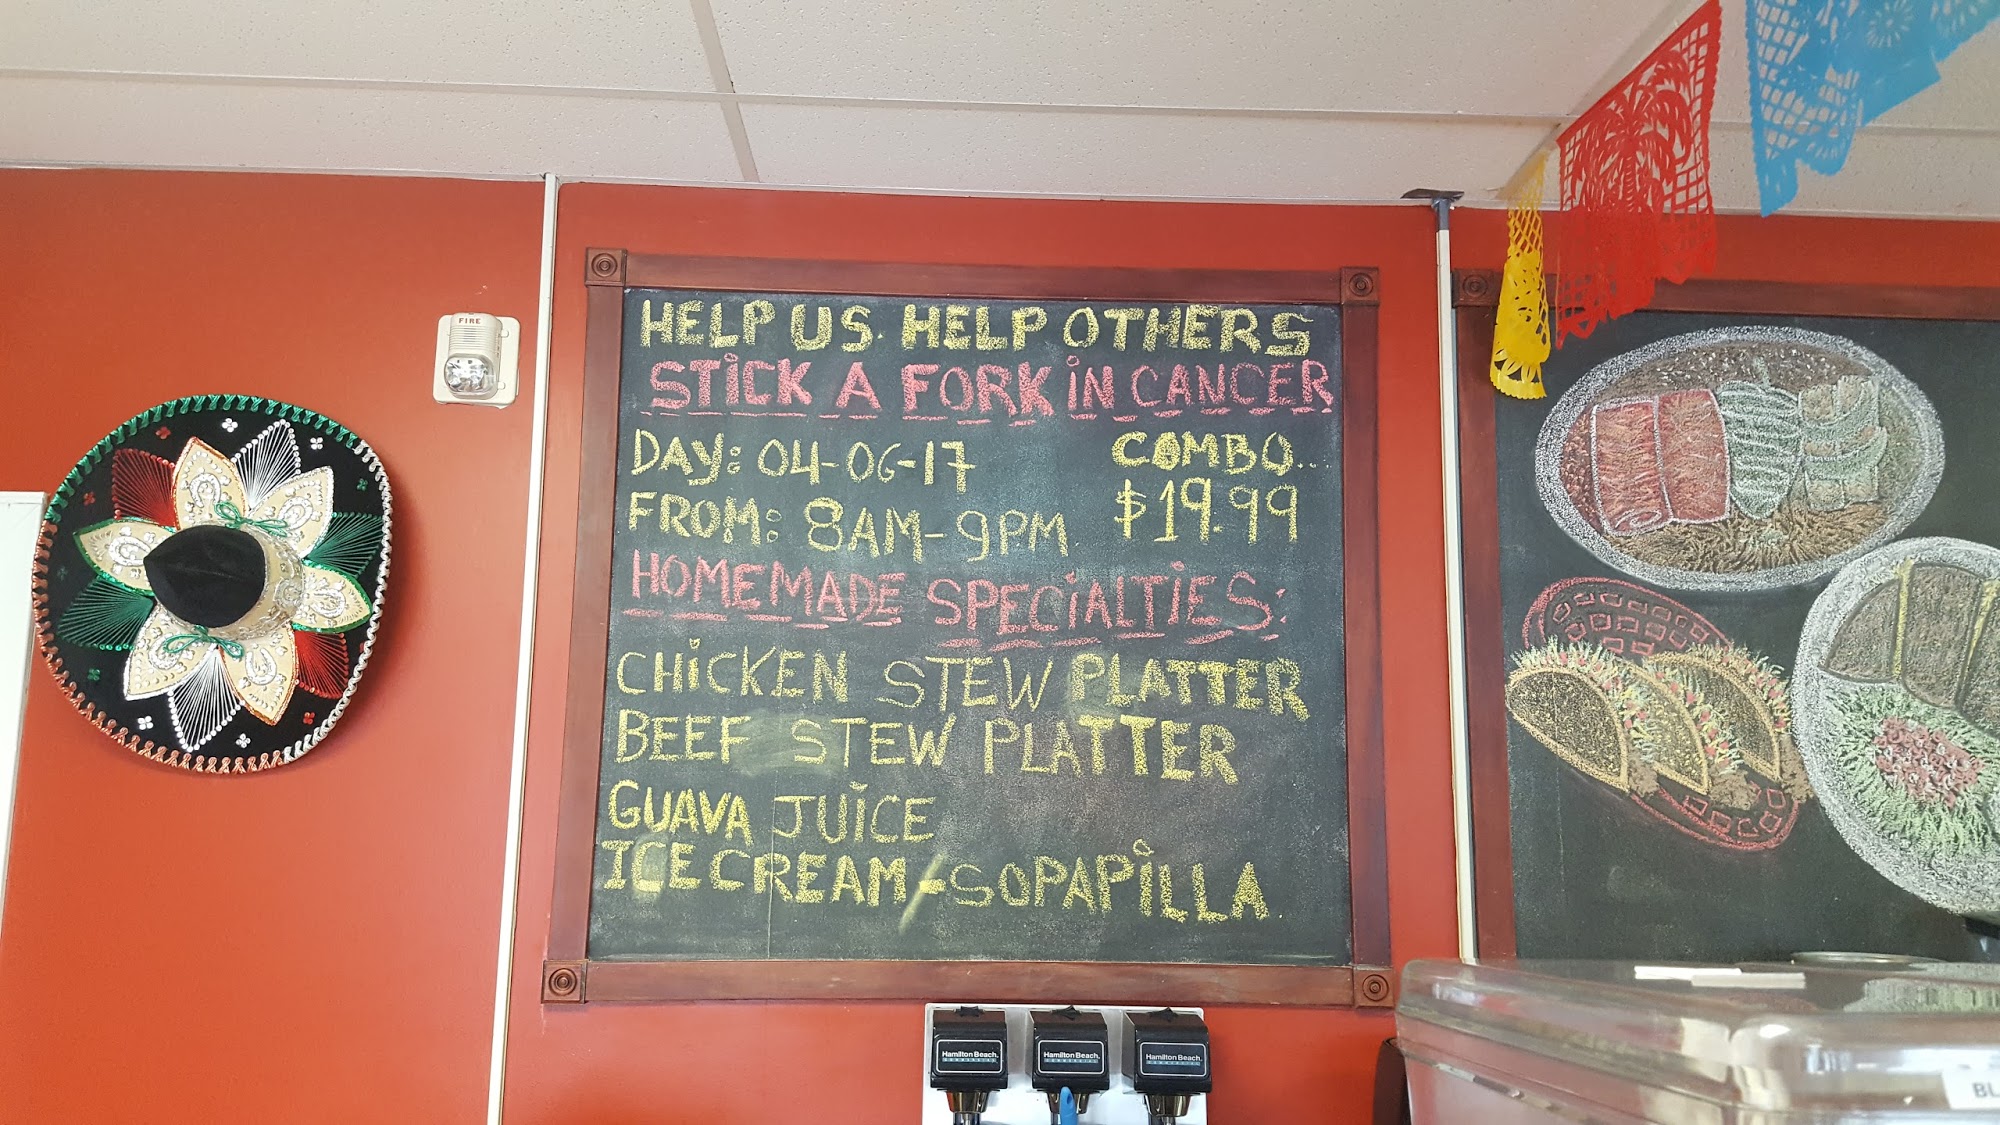 FIRE
HELP US HELP OTHERS
STICK A FORK IN CANCER
DAY: 04-06-17
COMBO..
$19.99
FROM: 8AM-9PM
HOMEMADE SPECIALTIES:
CHICKEN STEW PLATTER
BEEF STEW PLATTER
GUAVA JUICE
ICE CREAM-SOPAPILLA
Hamilton Beach
COMMERCIAL
Hamilton Beach
COMMERCIAL
Hamilton Beach
COMMERCIAL
BL